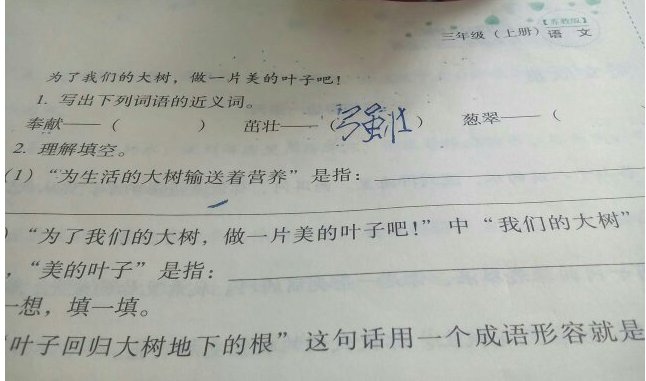 【苏教版】
三年级（上册）语文
为了我们的大树，做一片美的叶子吧！
1. 写出下列词语的近义词。
奉献——（ ） 茁壮——（强壮） 葱翠——（
2. 理解填空。
（1）“为生活的大树输送着营养”是指：
）“为了我们的大树，做一片美的叶子吧！”中“我们的大树”
，“美的叶子”是指：
一想，填一填。
“叶子回归大树地下的根”这句话用一个成语形容就是